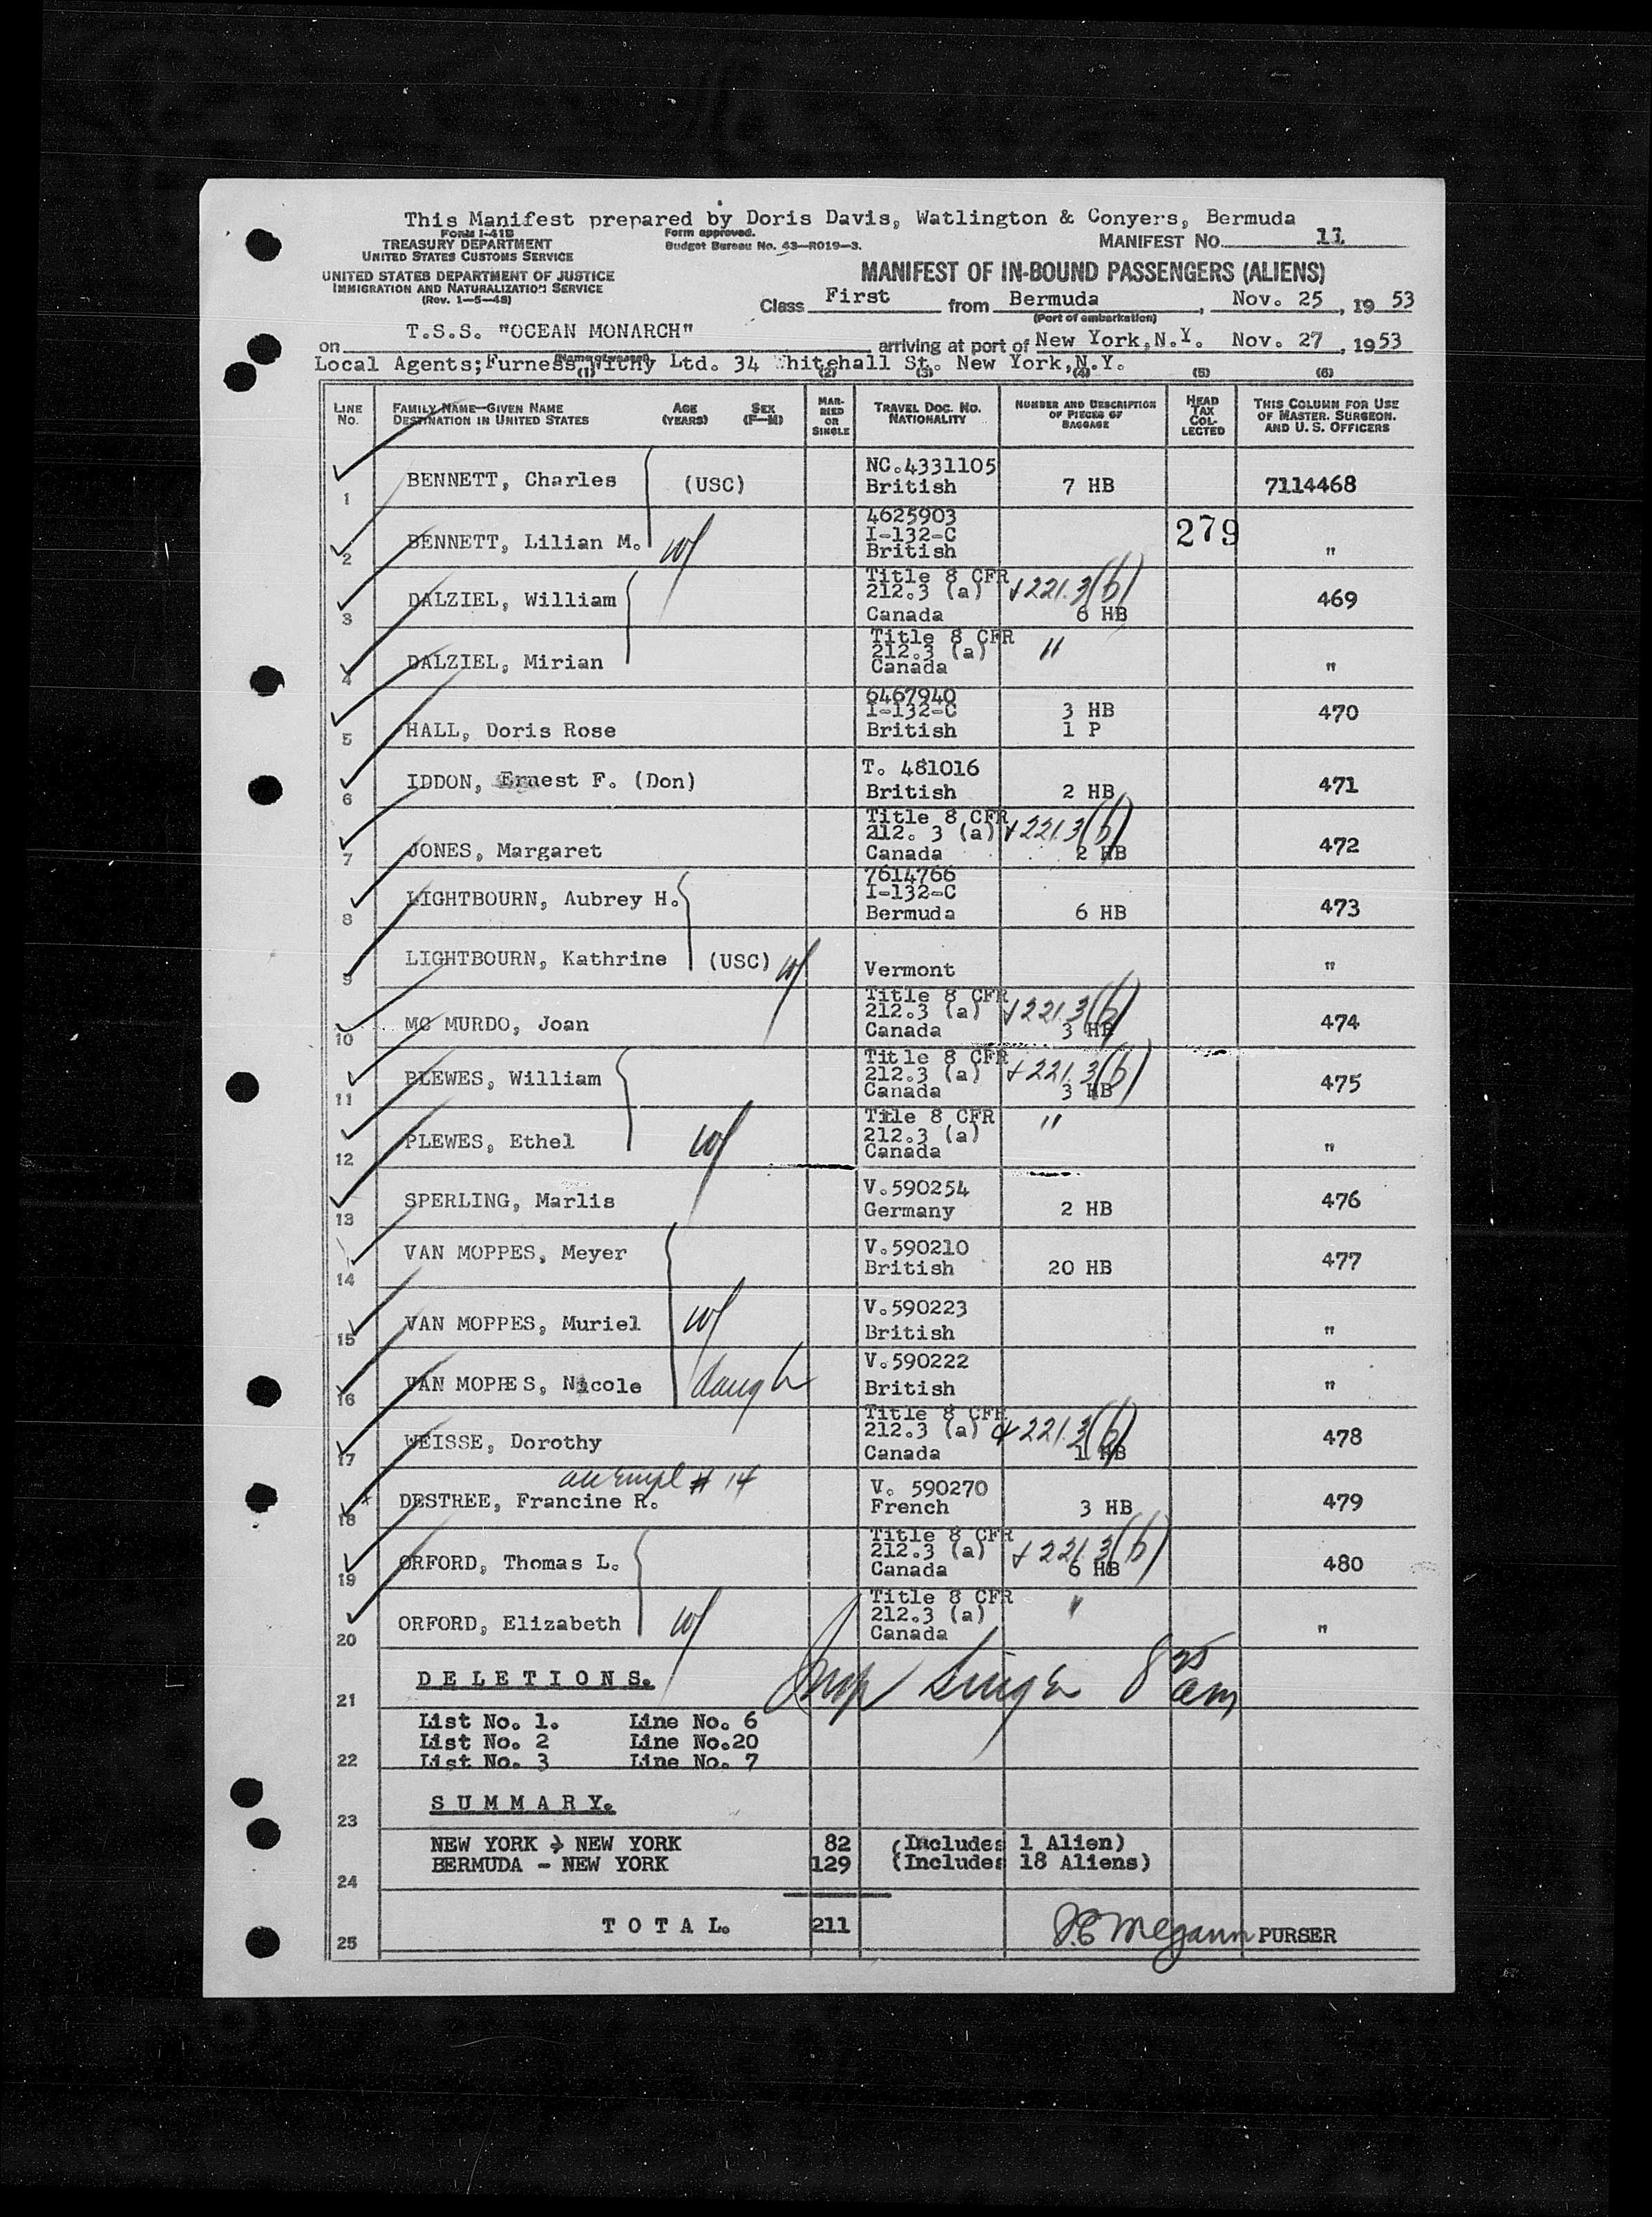 This Manifest prepared by Doris Davis, Watlington & Conyers, Bermuda
Form I-41B
TREASURY DEPARTMENT
UNITED STATES CUSTOMS SERVICE
Form approved.
Budget Bureau No. 43—R019—3.
MANIFEST NO. 11
UNITED STATES DEPARTMENT OF JUSTICE
IMMIGRATION AND NATURALIZATION SERVICE
(Rev. 1—5—48)
MANIFEST OF IN-BOUND PASSENGERS (ALIENS)
Class First from Bermuda, Nov. 25, 1953
(Port of embarkation)
on T.S.S. "OCEAN MONARCH" arriving at port of New York, N.Y. Nov. 27, 1953
(Name of vessel)
Local Agents; Furness, Withy Ltd. 34 Whitehall St. New York, N.Y.
(1) (2) (3) (4) (5) (6)
LINE NO.
FAMILY NAME—GIVEN NAME
DESTINATION IN UNITED STATES
AGE (YEARS)
SEX (F—M)
MARRIED OR SINGLE
TRAVEL DOC. NO.
NATIONALITY
NUMBER AND DESCRIPTION OF PIECES OF BAGGAGE
HEAD TAX COLLECTED
THIS COLUMN FOR USE OF MASTER, SURGEON, AND U. S. OFFICERS
1 BENNETT, Charles (USC) NC.4331105 British 7 HB 7114468
2 BENNETT, Lilian M. W/ 4625903 I-132-C British 279 "
3 DALZIEL, William Title 8 CFR 212.3 (a) + 221.3(b) Canada 6 HB 469
4 DALZIEL, Mirian Title 8 CFR 212.3 (a) Canada " "
5 HALL, Doris Rose 6467940 I-132-C British 3 HB 1 P 470
6 IDDON, Ernest F. (Don) T. 481016 British 2 HB 471
7 JONES, Margaret Title 8 CFR 212. 3 (a) + 221.3(b) Canada 2 HB 472
8 LIGHTBOURN, Aubrey H. 7614766 I-132-C Bermuda 6 HB 473
9 LIGHTBOURN, Kathrine (USC) W/ Vermont "
10 MC MURDO, Joan Title 8 CFR 212.3 (a) + 221.3(b) Canada 3 HB 474
11 BLEWES, William Title 8 CFR 212.3 (a) + 221.3(b) Canada 3 HB 475
12 PLEWES, Ethel W/ Title 8 CFR 212.3 (a) Canada " "
13 SPERLING, Marlis V.590254 Germany 2 HB 476
14 VAN MOPPES, Meyer V.590210 British 20 HB 477
15 VAN MOPPES, Muriel W/ V.590223 British "
16 VAN MOPPES, Nicole daugh V.590222 British "
17 WEISSE, Dorothy Title 8 CFR 212.3 (a) + 221.3(b) Canada 1 HB 478
# 14
18 DESTREE, Francine R. V. 590270 French 3 HB 479
19 ORFORD, Thomas L. Title 8 CFR 212.3 (a) + 221.3(b) Canada 6 HB 480
20 ORFORD, Elizabeth W/ Title 8 CFR 212.3 (a) Canada " "
21 DELETIONS. Insp Singer 8 25 am
List No. 1. Line No. 6
List No. 2 Line No.20
22 List No. 3 Line No. 7
23 SUMMARY.
NEW YORK - NEW YORK 82 (Includes 1 Alien)
24 BERMUDA - NEW YORK 129 (Includes 18 Aliens)
25 TOTAL. 211 J.E. Megann PURSER